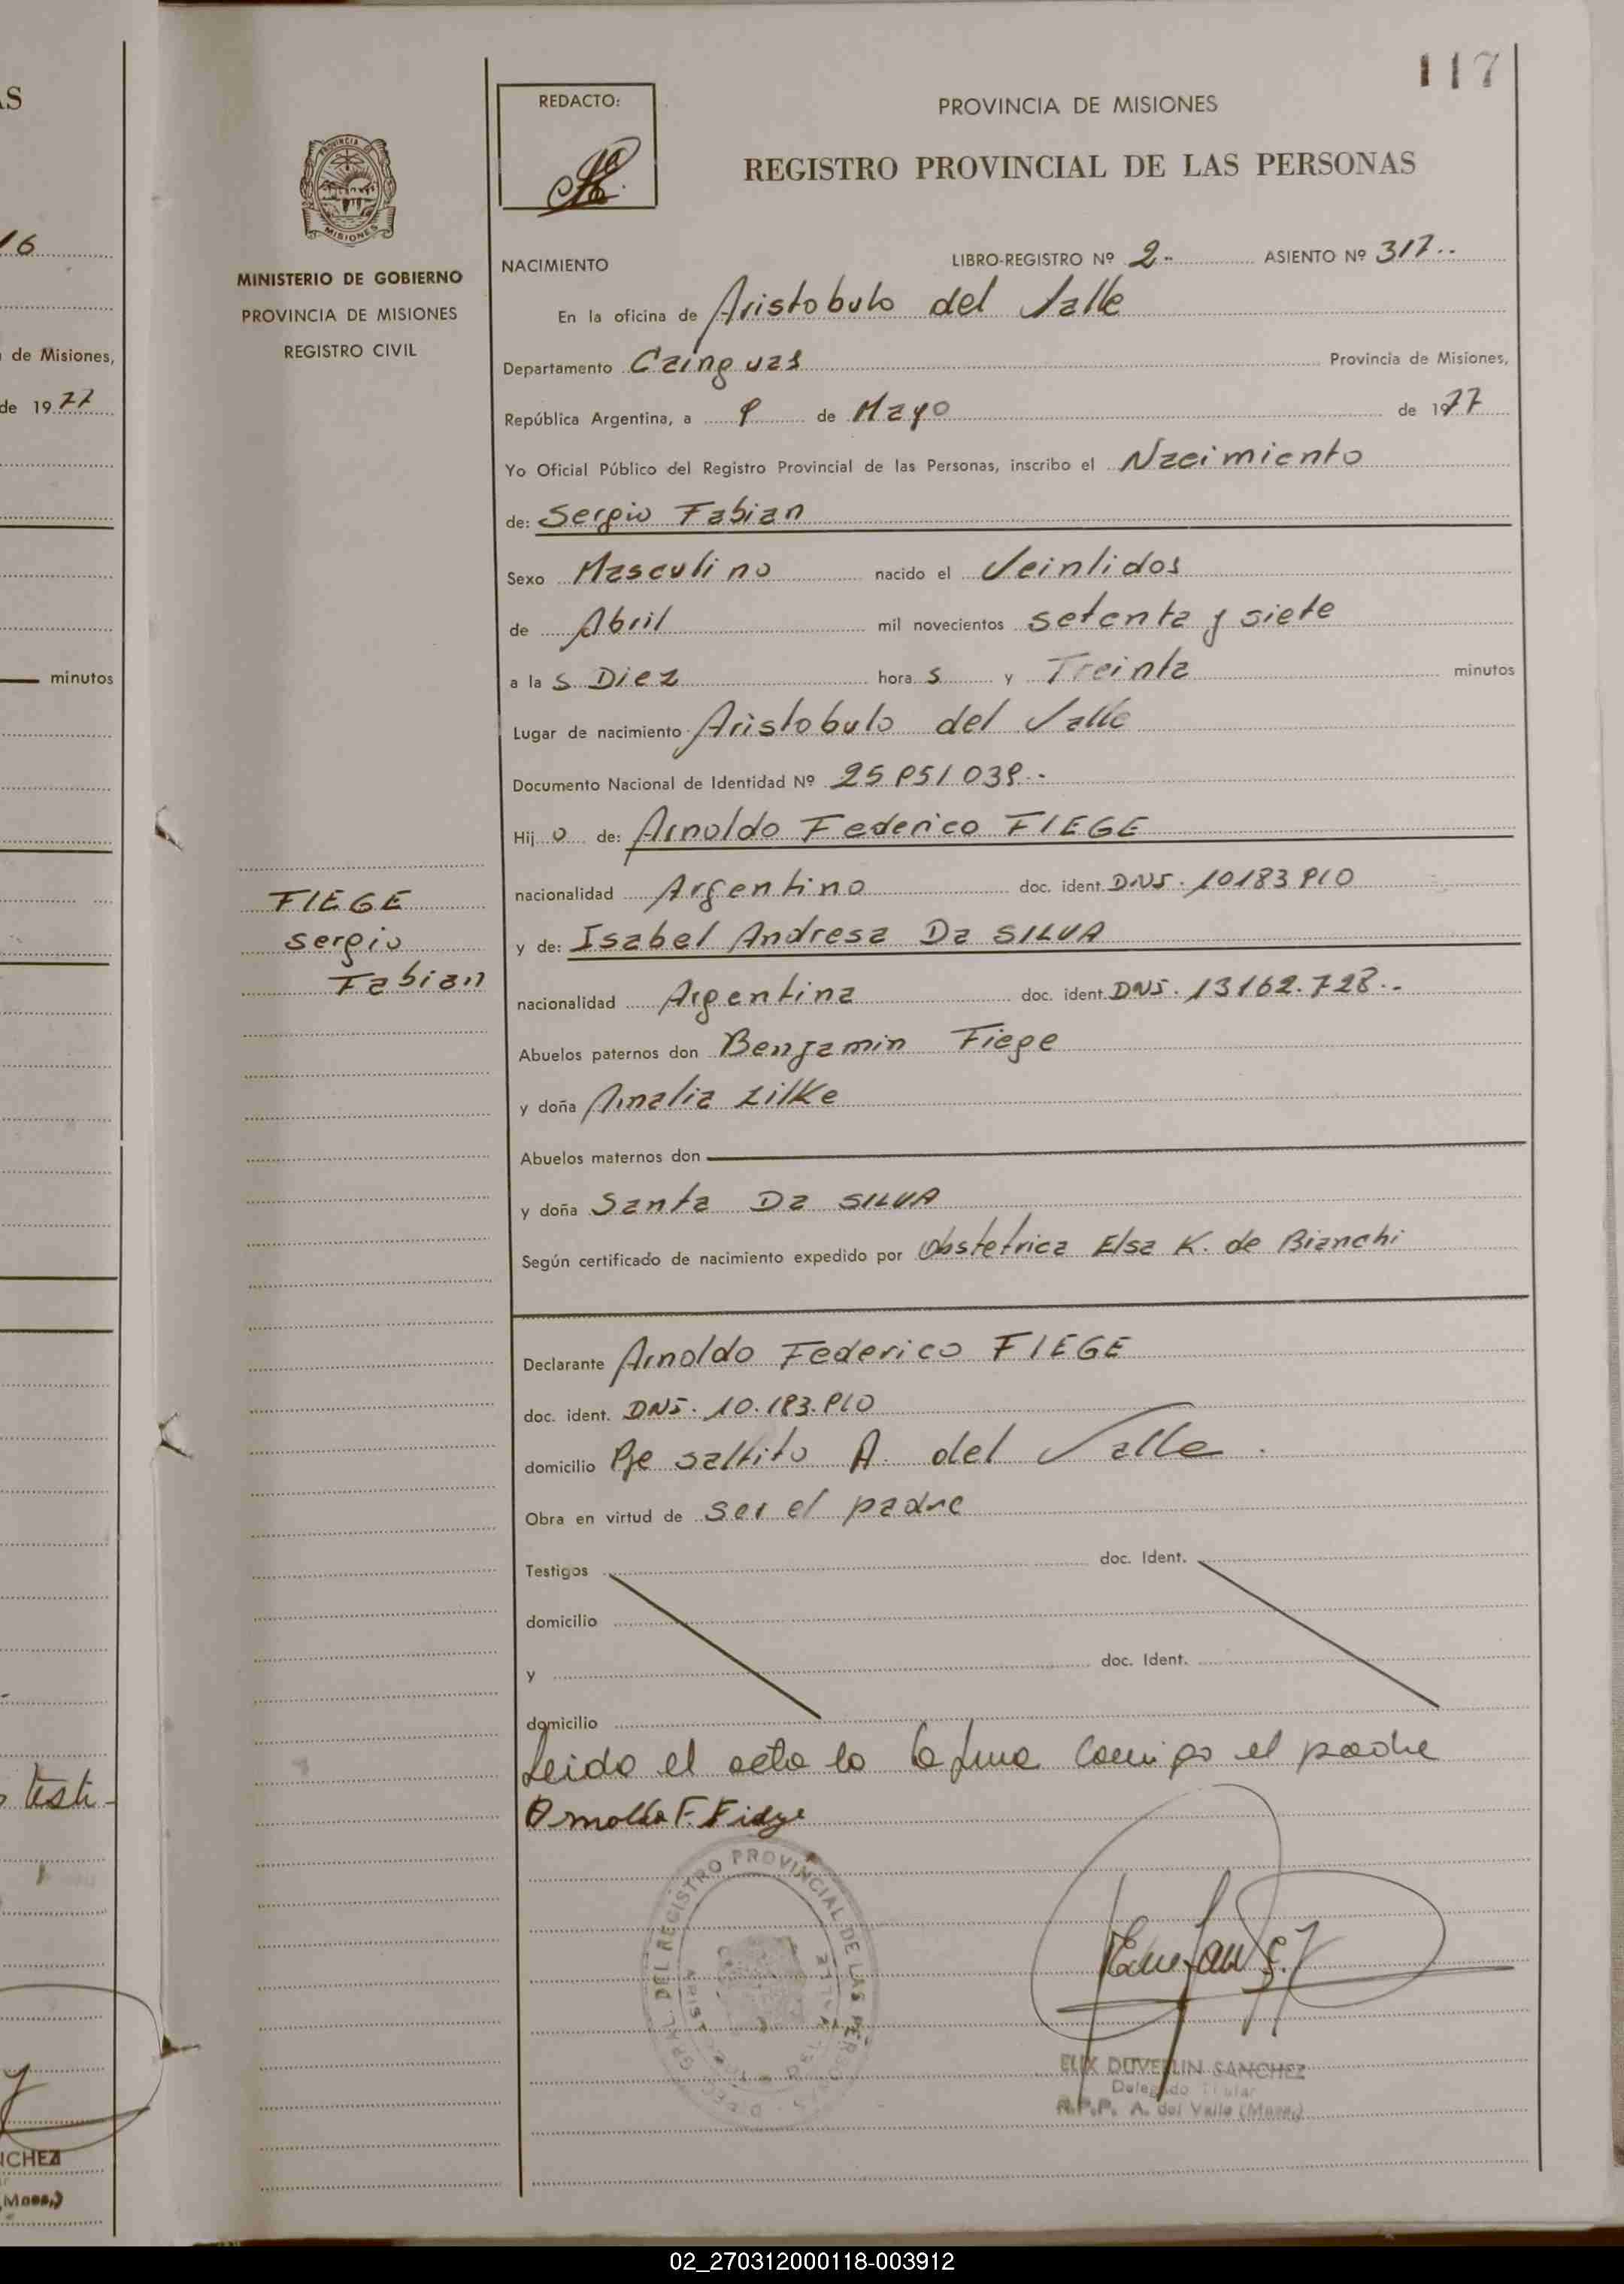 117
REDACTO:
PROVINCIA DE MISIONES
REGISTRO PROVINCIAL DE LAS PERSONAS
PROVINCIA DE
MISIONES
MINISTERIO DE GOBIERNO
PROVINCIA DE MISIONES
REGISTRO CIVIL
NACIMIENTO LIBRO-REGISTRO Nº 2.- ASIENTO Nº 317.-
En la oficina de Aristobulo del Valle
Departamento Cainguas Provincia de Misiones,
República Argentina, a 9 de Mayo de 1977
Yo Oficial Público del Registro Provincial de las Personas, inscribo el Nacimiento
de: Sergio Fabian
Sexo Masculino nacido el Veintidos
de Abril mil novecientos setenta y siete
a las Diez horas y Treinta minutos
Lugar de nacimiento Aristobulo del Valle
Documento Nacional de Identidad Nº
Hijo de: Arnoldo Federico FIEGE
nacionalidad Argentino doc. ident. DNI.
y de: Isabel Andresa Da SILVA
nacionalidad Argentina doc. ident. DNI. 13162.728.-
Abuelos paternos don Benjamin Fiege
y doña Amalia Lilke
Abuelos maternos don
y doña Santa Da SILVA
Según certificado de nacimiento expedido por Obstetrica Elsa K. de Bianchi
FIEGE
Sergio
Fabian
Declarante Arnoldo Federico FIEGE
doc. ident. DNI.
domicilio Pje saltito A. del Valle.
Obra en virtud de ser el padre
Testigos doc. Ident.
domicilio
y doc. Ident.
domicilio
Leido el acta lo firma conmigo el padre
Arnoldo F. Fidge
GRAL. DEL REGISTRO PROVINCIAL DE LAS PERSONAS
ELIX DUVERLIN SANCHEZ
Delegado Titular
R.P.P. A. del Valle (Mnes.)
16
de Misiones,
de 1977
minutos
testi-
02_270312000118-003912